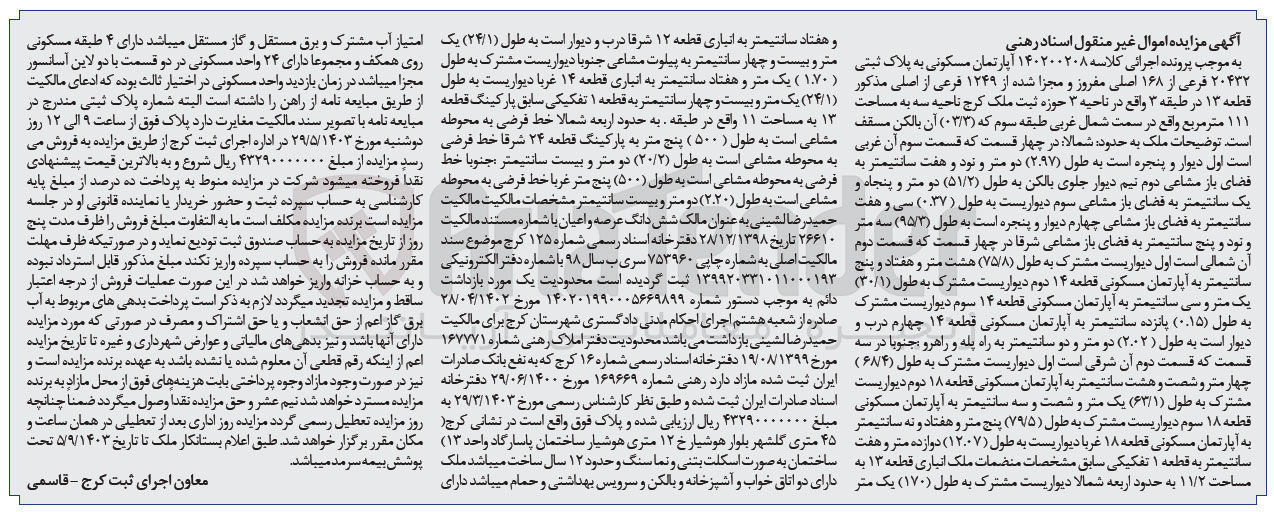 آگهی مزایده اموال غیر منقول اسناد رهنی
به موجب پرونده اجرائی کلاسه ۱۴۰۲۰۰۲۰۸ آپارتمان مسکونی به پلاک ثبتی
۲۰۴۳۲ فرعی از ۱۶۸ اصلی مفروز و مجزا شده از ۱۲۴۹ فرعی از اصلی مذکور
قطعه ۱۳ در طبقه ۳ واقع در ناحیه ۳ حوزه ثبت ملک کرج ناحیه سه به مساحت
۱۱۱ مترمربع واقع در سمت شمال غربی طبقه سوم که (۰۳/۳) آن بالکن مسقف
است. توضیحات ملک به حدود: شمالا: در چهار قسمت که قسمت سوم آن غربی
است اول دیوار و پنجره است به طول (۲.۹۷) دو متر و نود و هفت سانتیمتر به
فضای باز مشاعی دوم نیم دیوار جلوی بالکن به طول (۵۱/۲) دو متر و پنجاه و
یک سانتیمتر به فضای باز مشاعی سوم دیواریست به طول (۰.۳۷) سی و هفت
سانتیمتر به فضای باز مشاعی چهارم دیوار و پنجره است به طول (۹۵/۳) سه متر
و نود و پنج سانتیمتر به فضای باز مشاعی شرقا در چهار قسمت که قسمت دوم
آن شمالی است اول دیواریست مشترک به طول (۷۵/۸) هشت متر و هفتاد و پنج
سانتیمتر به آپارتمان مسکونی قطعه ۱۴ دوم دیواریست مشترک به طول (۳۰/۱)
یک متر و سی سانتیمتر به آپارتمان مسکونی قطعه ۱۴ سوم دیواریست مشترک
به طول (۰.۱۵) پانزده سانتیمتر به آپارتمان مسکونی قطعه ۱۴ چهارم درب و
دیوار است به طول (۲.۰۲) دو متر و دو سانتیمتر به راه پله و راهرو :جنوبا در سه
قسمت که قسمت دوم آن شرقی است اول دیواریست مشترک به طول (۶۸/۴)
چهار متر و شصت و هشت سانتیمتر به آپارتمان مسکونی قطعه ۱۸ دوم دیواریست
مشترک به طول (۶۳/۱) یک متر و شصت و سه سانتیمتر به آپارتمان مسکونی
قطعه ۱۸ سوم دیواریست مشترک به طول (۷۹/۵) پنج متر و هفتاد و نه سانتیمتر
به آپارتمان مسکونی قطعه ۱۸ غربا دیواریست به طول (۱۲.۰۷) دوازده متر و هفت
سانتیمتر به قطعه ۱ تفکیکی سابق مشخصات منضمات ملک انباری قطعه ۱۳ به
مساحت ۱۱/۲ به حدود اربعه شمالا دیواریست مشترک به طول (۱۷۰) یک متر
و هفتاد سانتیمتر به انباری قطعه ۱۲ شرقا درب و دیوار است به طول (۲۴/۱) یک
متر و بیست و چهار سانتیمتر به پیلوت مشاعی جنوبا دیواریست مشترک به طول
( ۱.۷۰ ) یک متر و هفتاد سانتیمتر به انباری قطعه ۱۴ غربا دیواریست به طول
(۲۴/۱) یک متر و بیست و چهار سانتیمتر به قطعه ۱ تفکیکی سابق پارکینگ قطعه
۱۳ به مساحت ۱۱ واقع در طبقه . به حدود اربعه شمالا خط فرضی به محوطه
مشاعی است به طول ( ۵۰۰ ) پنج متر به پارکینگ قطعه ۲۴ شرقا خط فرضی
به محوطه مشاعی است به طول (۲۰/۲) دو متر و بیست سانتیمتر ؛جنوبا خط
فرضی به محوطه مشاعی است به طول (۵۰۰) پنج متر غربا خط فرضی به محوطه
مشاعی است به طول (۲.۲۰) دو متر و بیست سانتیمتر مشخصات مالکیت مالکیت
حمیدرضا لشینی به عنوان مالک شش دانگ عرصه و اعیان با شماره مستند مالکیت
۲۶۶۱۰ تاریخ ۲۸/۱۲/۱۳۹۸ دفترخانه اسناد رسمی شماره ۱۲۵ کرج موضوع سند
مالکیت اصلی به شماره چاپی ۷۵۳۹۶۰ سری ب سال ۹۸ با شماره دفتر الکترونیکی
۱۳۹۹۲۰۳۳۱۰۱۱۰۰۰۱۹۳ ثبت گردیده است محدودیت یک مورد بازداشت
دائم به موجب دستور شماره ۱۴۰۲۰۱۹۹۰۰۰۵۶۶۹۸۹۹ مورخ ۲۸/۰۴/۱۴۰۲
صادره از شعبه هشتم اجرای احکام مدنی دادگستری شهرستان کرج برای مالکیت
حمیدرضا لشینی بازداشت می باشد محدودیت دفتر املاک رهنی شماره ۱۶۷۷۷۱
مورخ ۱۹/۰۸/۱۳۹۹ دفترخانه اسناد رسمی شماره ۱۶ کرج که به نفع بانک صادرات
ایران ثبت شده مازاد دارد رهنی شماره ۱۶۹۶۶۹ مورخ ۲۹/۰۶/۱۴۰۰ دفترخانه
اسناد صادرات ایران ثبت شده و طبق نظر کارشناس رسمی مورخ ۲۹/۳/۱۴۰۳ به
مبلغ ۴۳۲۹۰۰۰۰۰۰۰ ریال ارزیابی شده و پلاک فوق واقع است در نشانی کرج(
۴۵ متری گلشهر بلوار هوشیار خ ۱۲ متری هوشیار ساختمان پاسارگاد واحد ۱۳)
ساختمان به صورت اسکلت بتنی و نما سنگ و حدود ۱۲ سال ساخت میباشد ملک
دارای دو اتاق خواب و آشپزخانه و بالکن و سرویس بهداشتی و حمام میباشد دارای
امتیاز آب مشترک و برق مستقل و گاز مستقل میباشد دارای ۴ طبقه مسکونی
روی همکف و مجموعا دارای ۲۴ واحد مسکونی در دو قسمت با دو لاین آسانسور
مجزا میباشد در زمان بازدید واحد مسکونی در اختیار ثالث بوده که ادعای مالکیت
از طریق مبایعه نامه از راهن را داشته است البته شماره پلاک ثبتی مندرج در
مبایعه نامه با تصویر سند مالکیت مغایرت دارد پلاک فوق از ساعت ۹ الی ۱۲ روز
دوشنبه مورخ ۲۹/۵/۱۴۰۳ در اداره اجرای ثبت کرج از طریق مزایده به فروش می
رسد مزایده از مبلغ ۴۳۲۹۰۰۰۰۰۰۰ ریال شروع و به بالاترین قیمت پیشنهادی
نقداً فروخته میشود شرکت در مزایده منوط به پرداخت ده درصد از مبلغ پایه
کارشناسی به حساب سپرده ثبت و حضور خریدار یا نماینده قانونی او در جلسه
مزایده است برنده مزایده مکلف است ما به التفاوت مبلغ فروش را ظرف مدت پنج
روز از تاریخ مزایده به حساب صندوق ثبت تودیع نماید و در صورتیکه ظرف مهلت
مقرر مانده فروش را به حساب سپرده واریز نکند مبلغ مذکور قابل استرداد نبوده
و به حساب خزانه واریز خواهد شد در این صورت عملیات فروش از درجه اعتبار
ساقط و مزایده تجدید میگردد لازم به ذکر است پرداخت بدهی های مربوط به آب
برق گاز اعم از حق انشعاب و یا حق اشتراک و مصرف در صورتی که مورد مزایده
دارای آنها باشد و نیز بدهی‌های مالیاتی و عوارض شهرداری و غیره تا تاریخ مزایده
اعم از اینکه رقم قطعی آن معلوم شده یا نشده باشد به عهده برنده مزایده است و
نیز در صورت وجود مازاد وجوه پرداختی بابت هزینه‌های فوق از محل مازاد به برنده
مزایده مسترد خواهد شد نیم عشر و حق مزایده نقداً وصول میگردد ضمنا چنانچه
روز مزایده تعطیل رسمی گردد مزایده روز اداری بعد از تعطیلی در همان ساعت و
مکان مقرر برگزار خواهد شد. طبق اعلام بستانکار ملک تا تاریخ ۵/۹/۱۴۰۳ تحت
پوشش بیمه سرمد میباشد.
معاون اجرای ثبت کرج – قاسمی